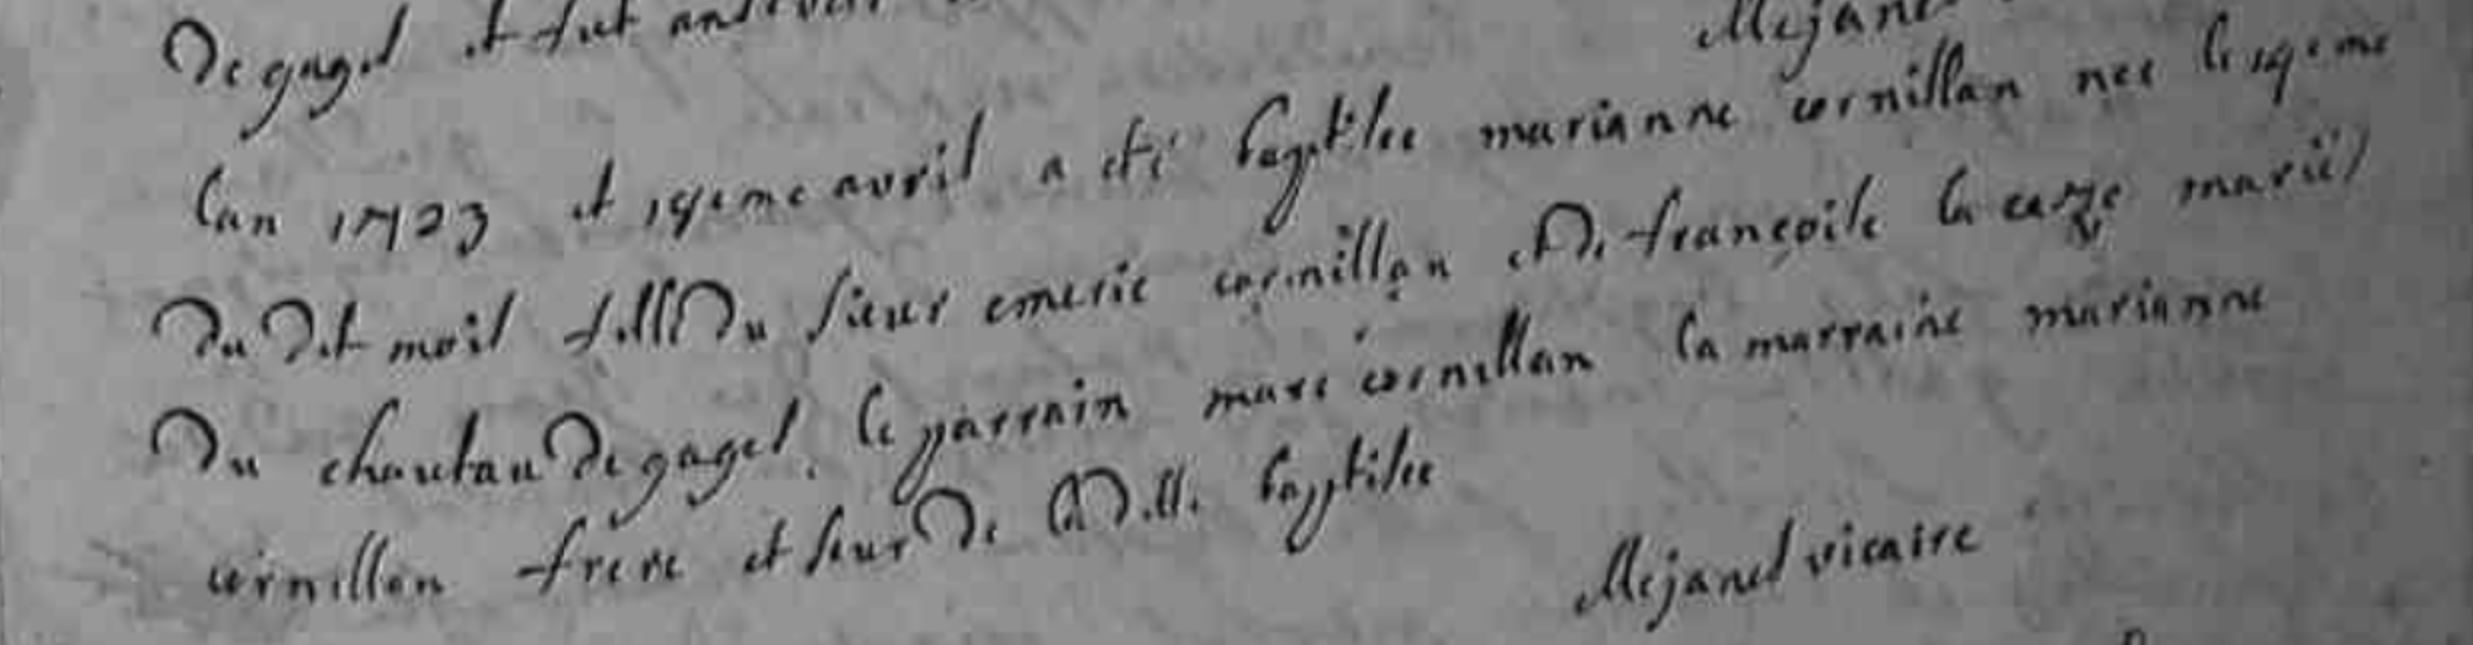 de gages et fut
Mejane
lan 1723 et 19eme avril a eté baptisee marianne cornillan nee le 19eme
du dit mois fille du sieur emeric cornillan et de françoise la caze mariés
du chautau de gages. le parrain marc cornillan la marraine marianne
cornillan frere et seur de la d.lle baptisee
Mejanes vicaire